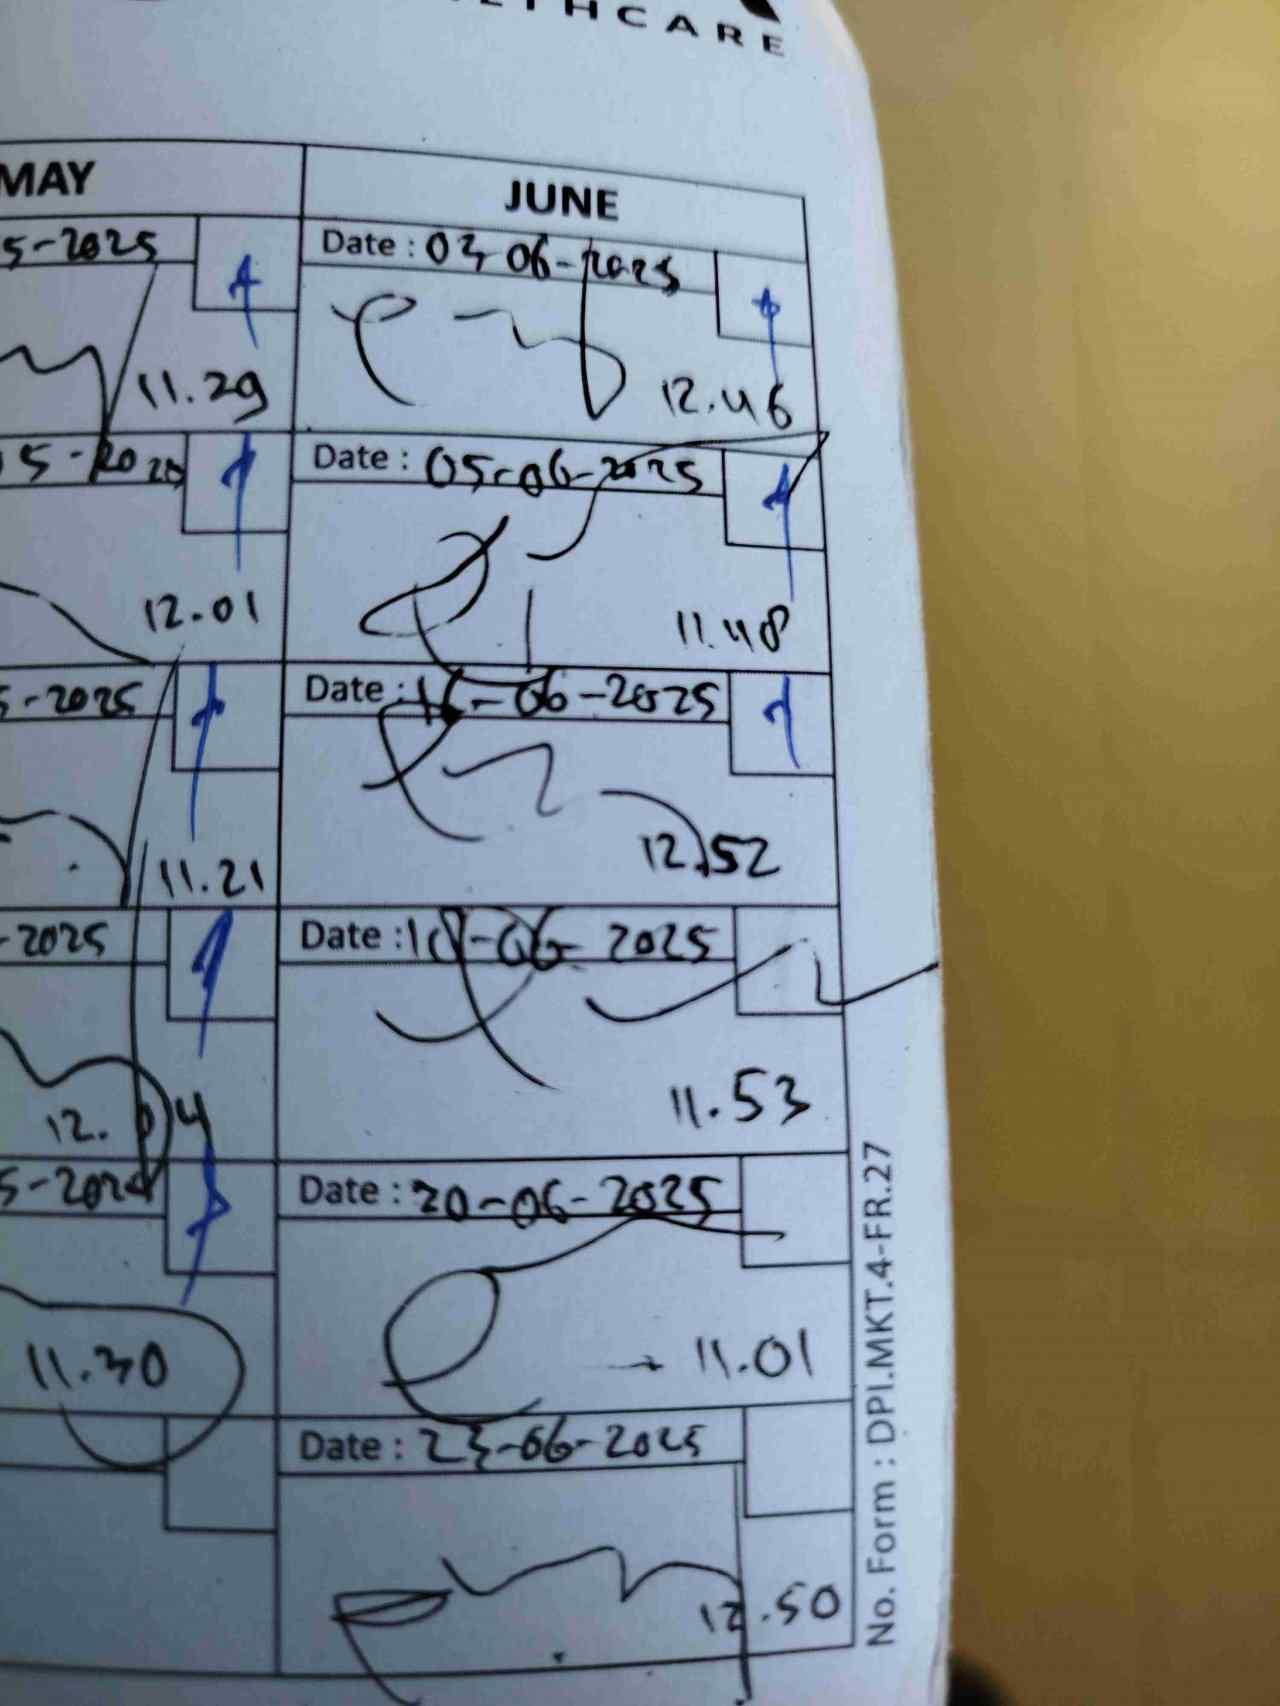 HCARE
MAY
5-2025
11.29
12.01
5-2025
11.21
-2025
12.
11.30
JUNE
Date : 03-06-2025
12.46
Date : 05-06-2025
11.48
Date : 16-06-2025
12.52
Date : -06-2025
11.53
Date : 20-06-2025
11.01
Date : 23-06-2025
12.50
No. Form : DPI.MKT.4-FR.27